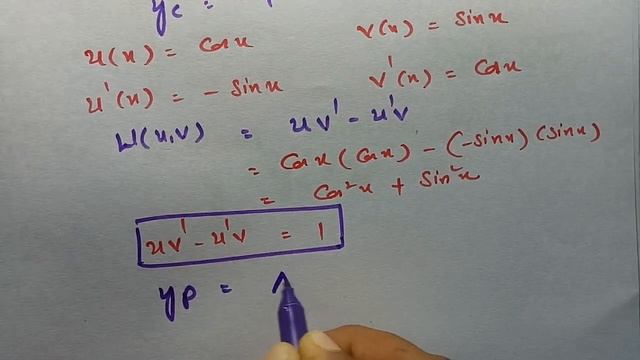 yc =
u(x) = cosx
v(x) = sinx
u'(x) = - sinx
v'(x) = cosx
W(u,v) = uv' - u'v
= cosx (cosx) - (-sinx) (sinx)
= cos²x + sin²x
uv' - u'v = 1
yp =